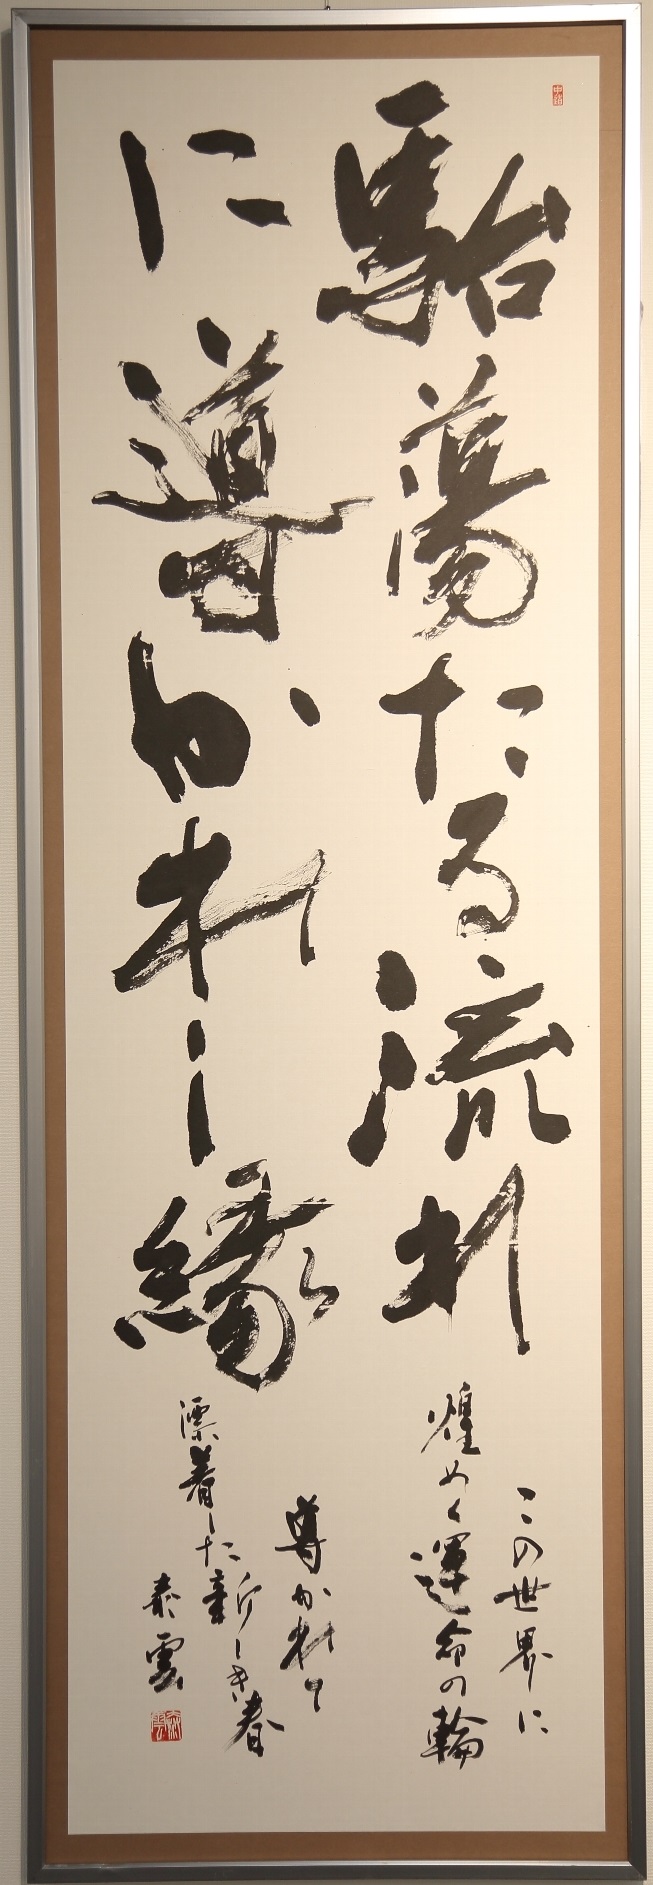 駘蕩たる流れ
に導かれし縁
この世界に
煌めく運命の輪
導かれて
漂着した新しき春
泰雲